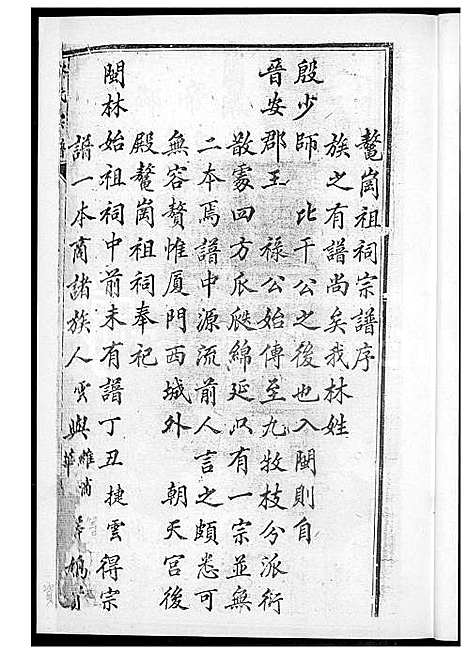 鰲崗祖祠宗譜序
族之有譜尚矣我林姓
殷少師　比干公之後也入閩則自
晉安郡王　祿公始傳至九牧枝分派衍
散處四方瓜瓞綿延以有一宗並無
二本焉譜中源流前人言之頗悉可
無容贅惟厦門西城外　朝天宮後
殿鰲崗祖祠奉祀
閩林始祖祠中前未有譜丁丑捷雲得宗
譜一本商諸族人雲與維